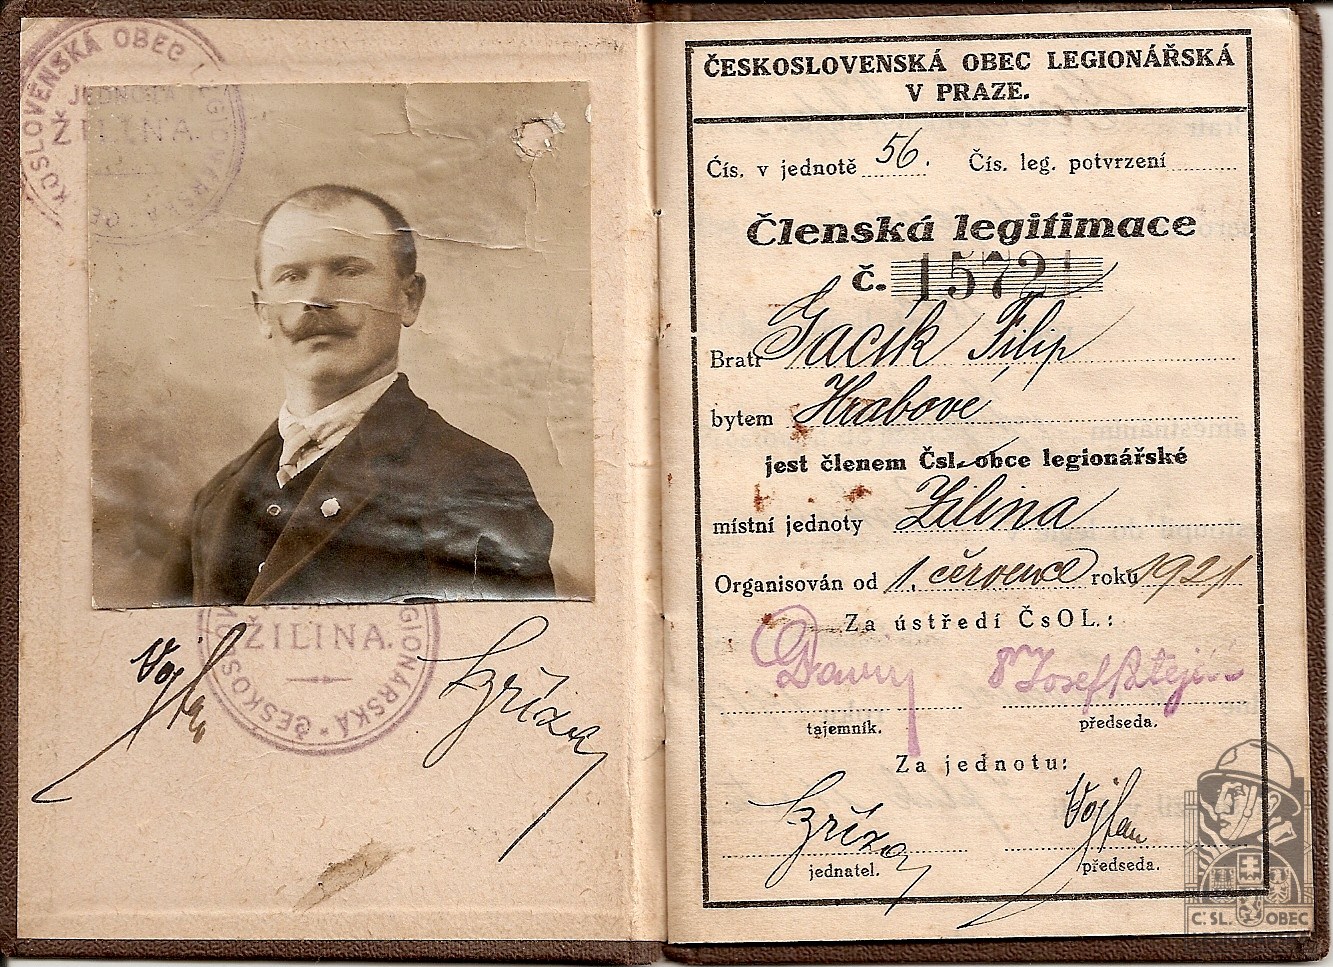 ČESKOSLOVENSKÁ OBEC LEGIONÁŘSKÁ
JEDNOTA
ŽILINA.
ČESKOSLOVENSKÁ OBEC LEGIONÁŘSKÁ
V PRAZE.
Čís. v jednotě 56. Čís. leg. potvrzení
Členská legitimace
č. 15721
Bratr Gacík Filip
bytem Hrabové
jest členem Čsl. obce legionářské
místní jednoty Žilina
Organisován od 1. července roku 1921
Za ústředí ČsOL.:
Josef Patejdl
tajemník. předseda.
Za jednotu:
jednatel. předseda.
ŽILINA.
ČESKOSLOVENSKÁ LEGIONÁŘSKÁ
Č.SL. OBEC